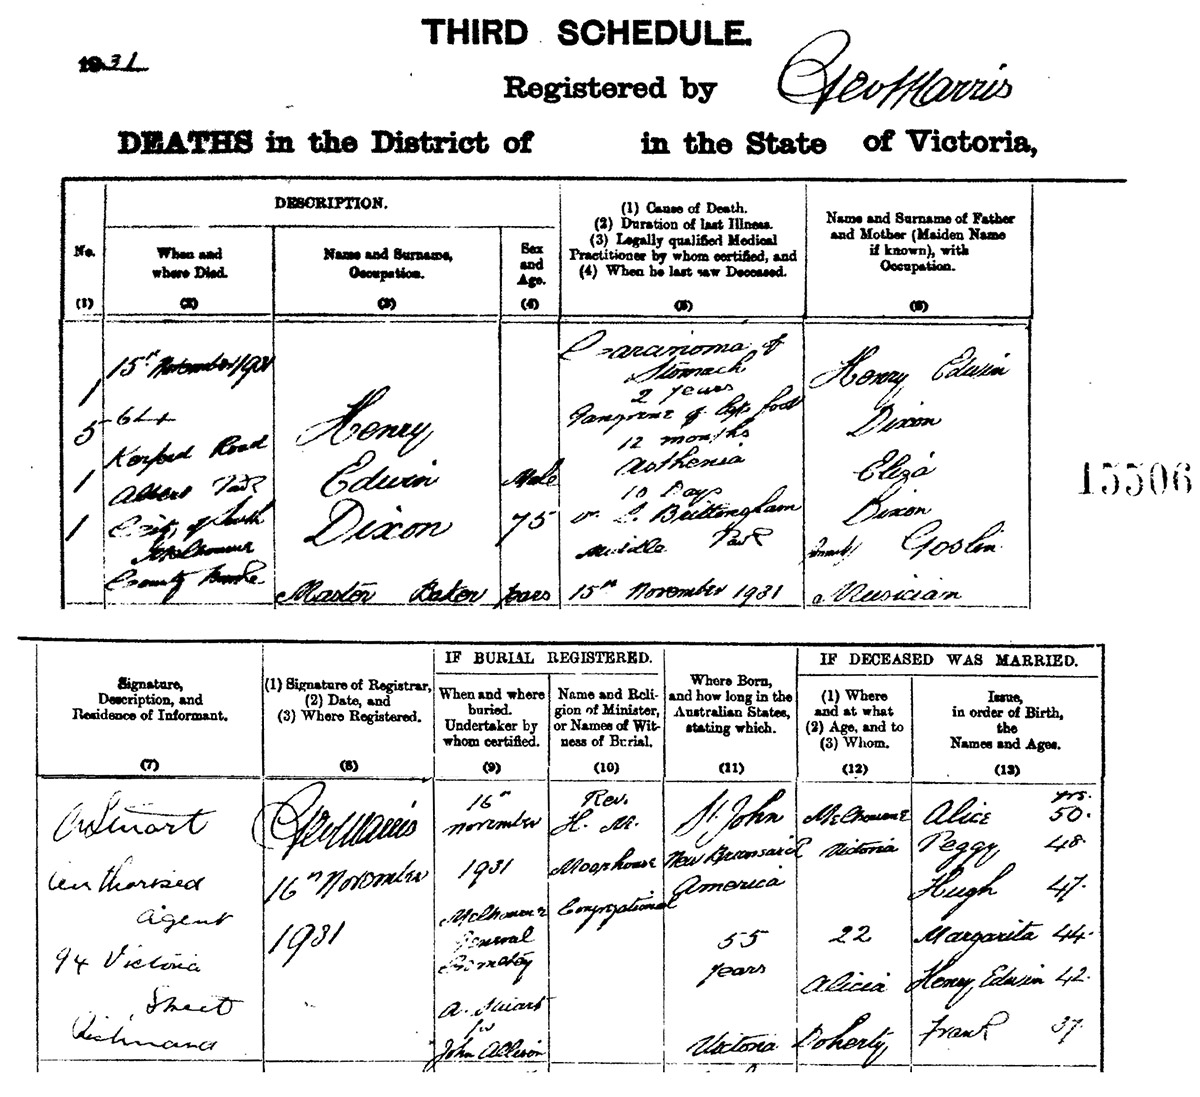 THIRD SCHEDULE.
1931
Registered by Geo Harris
DEATHS in the District of in the State of Victoria,
DESCRIPTION.
No.
(1)
When and
where Died.
(2)
Name and Surname,
Occupation.
(3)
Sex
and
Age.
(4)
(1) Cause of Death.
(2) Duration of last Illness.
(3) Legally qualified Medical
Practitioner by whom certified, and
(4) When he last saw Deceased.
(5)
Name and Surname of Father
and Mother (Maiden Name
if known), with
Occupation.
(6)
1
5
1
1
15th November 1931
64
Kerferd Road
Albert Park
City of South
Melbourne
County Bourke
Henry
Edwin
Dixon
Master Baker
Male
75
years
Carcinoma of
Stomach
2 years
Gangrene of foot
12 months
Asthenia
10 Days
Brittingham
Middle Park
15th November 1931
Henry Edwin
Dixon
Eliza
Dixon
formerly Goslin
Musician
15506
Signature,
Description, and
Residence of Informant.
(7)
(1) Signature of Registrar,
(2) Date, and
(3) Where Registered.
(8)
IF BURIAL REGISTERED.
When and where
buried.
Undertaker by
whom certified.
(9)
Name and Reli-
gion of Minister,
or Names of Wit-
ness of Burial.
(10)
Where Born,
and how long in the
Australian States,
stating which.
(11)
IF DECEASED WAS MARRIED.
(1) Where
and at what
(2) Age, and to
(3) Whom.
(12)
Issue,
in order of Birth,
the
Names and Ages.
(13)
A Stuart
Authorised
agent
94 Victoria
Street
Richmond
Geo Harris
16th November
1931
16th
November
1931
Melbourne
General
Cemetery
A. Stuart
for
John Allison
Rev.
H. M.
Moorhouse
Congregational
St. John
New Brunswick
America
55
years
Victoria
Melbourne
Victoria
22
Alicia
Doherty
yrs.
Alice 50.
Peggy 48.
Hugh 47.
Margarita 44.
Henry Edwin 42.
Frank 37.